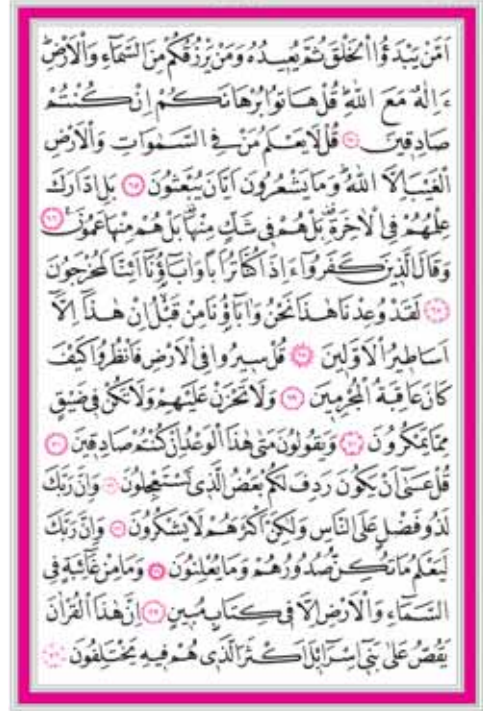 اَمَّنْ يَبْدَؤُا الْخَلْقَ ثُمَّ يُعِيدُهُ وَمَنْ يَرْزُقُكُمْ مِنَ السَّمَاءِ وَالْاَرْضِ
ءَاِلٰهٌ مَعَ اللّٰهِ قُلْ هَاتُوا بُرْهَانَكُمْ اِنْ كُنْتُمْ
صَادِقِينَ ﴿٦٤﴾ قُلْ لَا يَعْلَمُ مَنْ فِي السَّمٰوَاتِ وَالْاَرْضِ
الْغَيْبَ اِلَّا اللّٰهُ وَمَا يَشْعُرُونَ اَيَّانَ يُبْعَثُونَ ﴿٦٥﴾ بَلِ ادَّارَكَ
عِلْمُهُمْ فِي الْاٰخِرَةِ بَلْ هُمْ فِي شَكٍّ مِنْهَا بَلْ هُمْ مِنْهَا عَمُونَ ﴿٦٦﴾
وَقَالَ الَّذِينَ كَفَرُوا ءَاِذَا كُنَّا تُرَابًا وَاٰبَاؤُنَا اَئِنَّا لَمُخْرَجُونَ
﴿٦٧﴾ لَقَدْ وُعِدْنَا هٰذَا نَحْنُ وَاٰبَاؤُنَا مِنْ قَبْلُ اِنْ هٰذَا اِلَّا
اَسَاطِيرُ الْاَوَّلِينَ ﴿٦٨﴾ قُلْ سِيرُوا فِي الْاَرْضِ فَانْظُرُوا كَيْفَ
كَانَ عَاقِبَةُ الْمُجْرِمِينَ ﴿٦٩﴾ وَلَا تَحْزَنْ عَلَيْهِمْ وَلَا تَكُنْ فِي ضَيْقٍ
مِمَّا يَمْكُرُونَ ﴿٧٠﴾ وَيَقُولُونَ مَتٰى هٰذَا الْوَعْدُ اِنْ كُنْتُمْ صَادِقِينَ ﴿٧١﴾
قُلْ عَسٰى اَنْ يَكُونَ رَدِفَ لَكُمْ بَعْضُ الَّذِي تَسْتَعْجِلُونَ ﴿٧٢﴾ وَاِنَّ رَبَّكَ
لَذُو فَضْلٍ عَلَى النَّاسِ وَلٰكِنَّ اَكْثَرَهُمْ لَا يَشْكُرُونَ ﴿٧٣﴾ وَاِنَّ رَبَّكَ
لَيَعْلَمُ مَا تُكِنُّ صُدُورُهُمْ وَمَا يُعْلِنُونَ ﴿٧٤﴾ وَمَا مِنْ غَائِبَةٍ فِي
السَّمَاءِ وَالْاَرْضِ اِلَّا فِي كِتَابٍ مُبِينٍ ﴿٧٥﴾ اِنَّ هٰذَا الْقُرْاٰنَ
يَقُصُّ عَلٰى بَنِي اِسْرَائِلَ اَكْثَرَ الَّذِي هُمْ فِيهِ يَخْتَلِفُونَ ﴿٧٦﴾